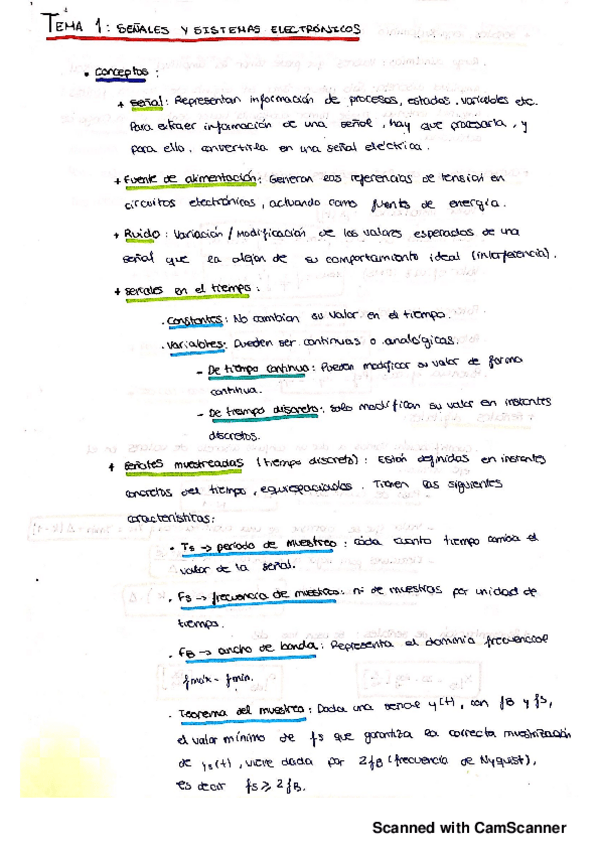 TEMA 1: SEÑALES Y SISTEMAS ELECTRÓNICOS
• Conceptos:
+ Señal: Representan información de procesos, estados, variables etc.
Para extraer información de una señal, hay que procesarla, y
para ello, convertirla en una señal eléctrica.
+ Fuente de alimentación: Generan las referencias de tensión en
circuitos electrónicos, actuando como fuente de energía.
+ Ruido: Variación / Modificación de los valores esperados de una
señal que la alejan de su comportamiento ideal (interferencia).
+ Señales en el tiempo:
. Constantes: No cambian su valor en el tiempo.
. Variables: Pueden ser continuas o analógicas.
- De tiempo continuo: Pueden modificar su valor de forma
continua.
- De tiempo discreto: solo modifican su valor en instantes
discretos.
+ Señales muestreadas (tiempo discreto): Están definidas en instantes
concretos del tiempo, equiespaciados. Tienen las siguientes
características:
. Ts → período de muestreo: cada cuanto tiempo cambia el
valor de la señal.
. Fs → frecuencia de muestreo: nº de muestras por unidad de
tiempo.
. FB → ancho de banda: Representa el dominio frecuencial
fmáx - fmin.
. Teorema del muestreo: Dada una señal y(t), con fB y fs,
el valor mínimo de fs que garantiza la correcta muestrización
de ys(t), viene dada por 2fB (frecuencia de Nyquist),
es decir fs ⩾ 2fB.
Scanned with CamScanner